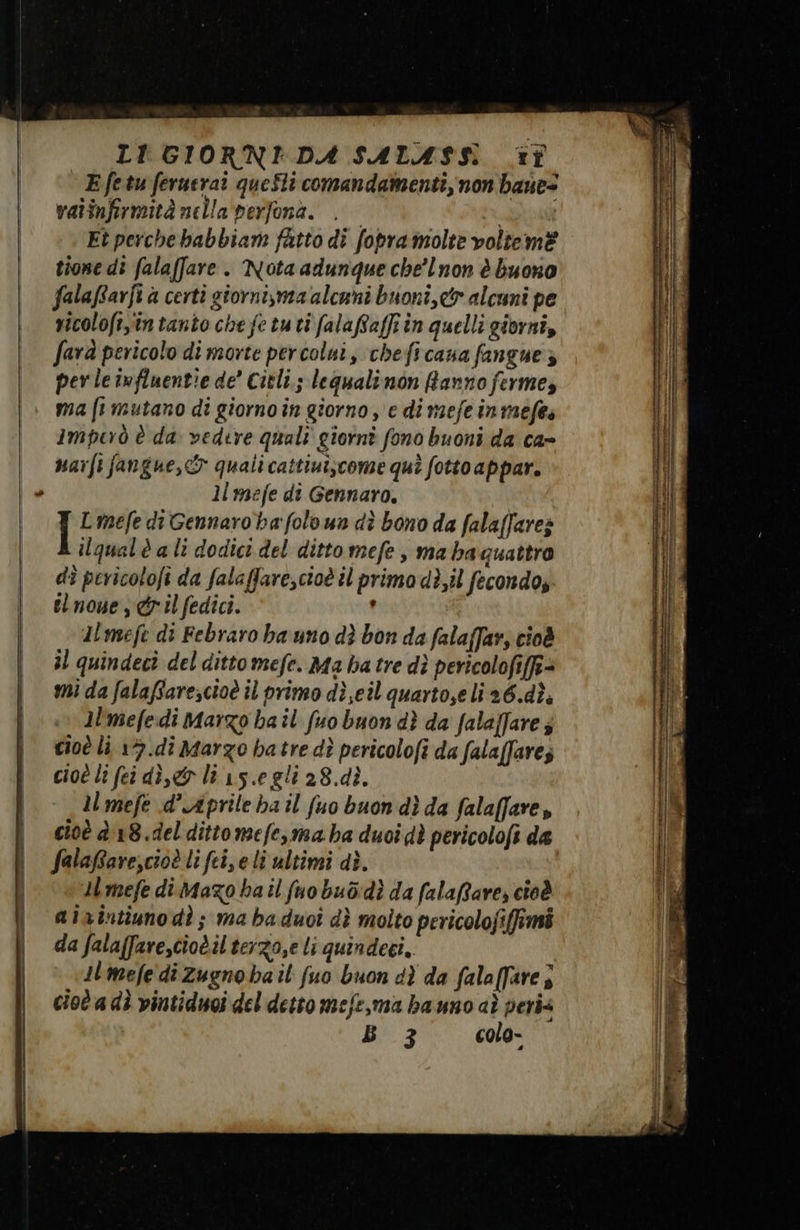 LI GIORNI DA SALASS. 11
E ſe tu ſeruerai queſti comandamenti, non haue-
rai infirmità nella perſona.
Et perche habbiam fatto di ſopra molte volte mẽ
tione di ſalaſſare. Nota adunque che'l non è buono
ſalaſſarſi a certi giorni, ma alcuni buoni, & alcuni pe
ricoloſi, in tanto che ſe tu ti ſalaſſaſſi in quelli giorni,
farà pericolo di morte per colui, che ſi caua ſangue;
per le influentie de' Cieli; lequali non ſtanno ferme,
ma ſi mutano di giorno in giorno, e di meſe in meſe.
Imperò è da vedere quali giorni ſono buoni da ca-
uarſi ſangue, & quali cattiui, come quì ſotto appar.
Il meſe di Gennaro.
IL meſe di Gennaro ha ſolo un dì bono da ſalaſſare;
ilqual è a li dodici del ditto meſe, ma ha quattro
dì pericoloſi da ſalaſſare, cioè il primo dì, il ſecondo,
il noue, & il ſedici.
Il meſe di Febraro ha uno dì bon da ſalaſſar, cioè
il quindeci del ditto meſe. Ma ha tre dì pericoloſiſſi-
mi da ſalaſſare, cioè il primo dì, e il quarto, e li 26. dì.
Il meſe di Marzo ha il ſuo buon dì da ſalaſſare;
cioè li 17. di Marzo ha tre dì pericoloſi da ſalaſſare;
cioè li ſei dì, & li 15. e gli 28. dì.
Il meſe d'Aprile ha il ſuo buon dì da ſalaſſare,
cioè à 18. del ditto meſe, ma ha duoi dì pericoloſi da
ſalaſſare, cioè li ſei, e li ultimi dì.
Il meſe di Mazo ha il ſuo buõ dì da ſalaſſare, cioè
ai vintiuno dì; ma ha duoi dì molto pericoloſiſſimi
da ſalaſſare, cioè il terzo, e li quindeci.
Il meſe di Zugno ha il ſuo buon dì da ſalaſſare;
cioè a dì vintiduoi del detto meſe, ma ha uno dì peri-
B 3 colo-